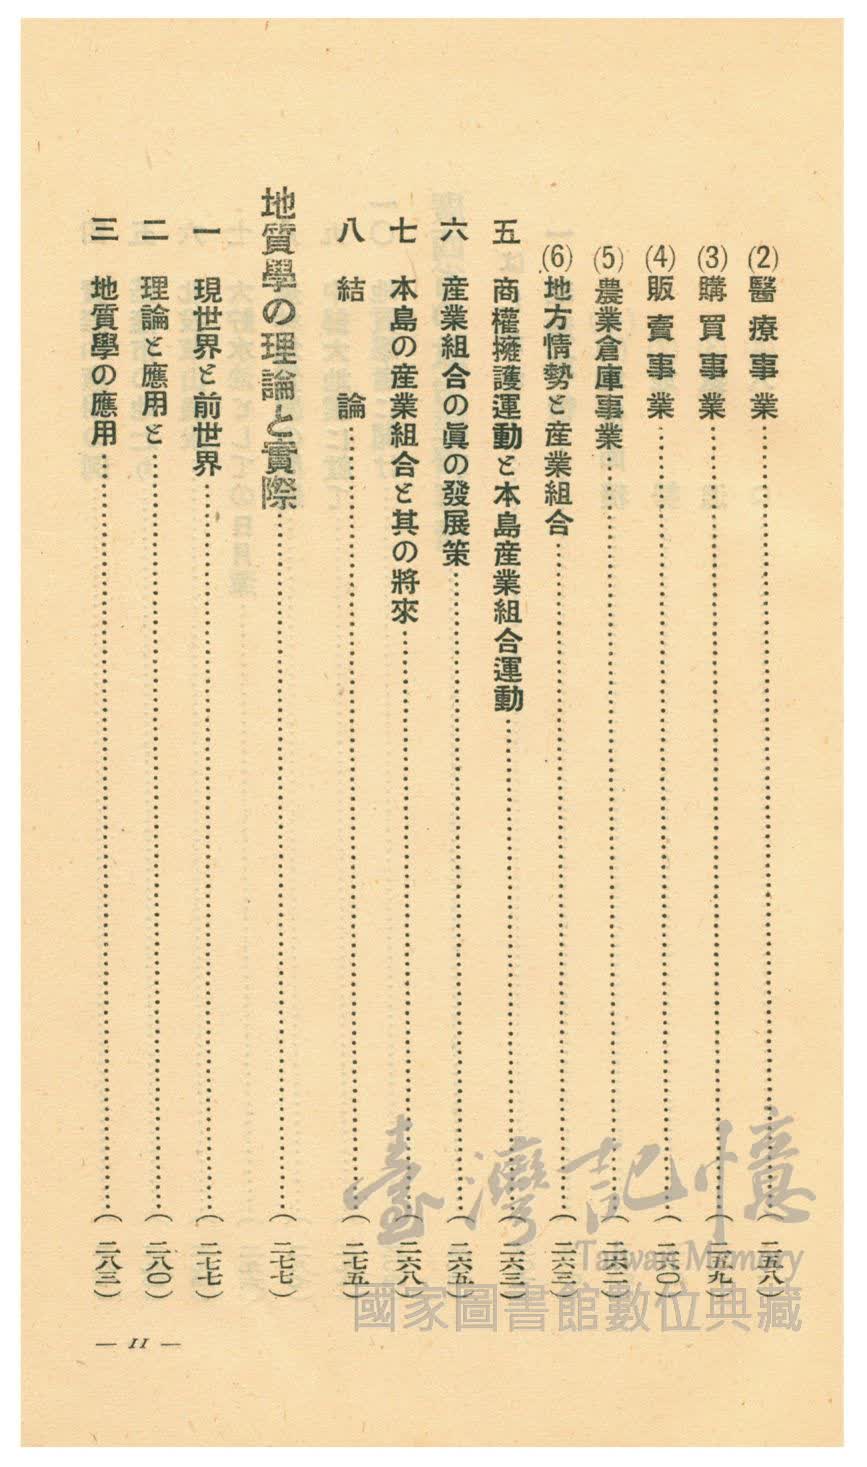 (2) 醫療事業……(二五八)
(3) 購買事業……(二五九)
(4) 販賣事業……(二六〇)
(5) 農業倉庫事業……(二六二)
(6) 地方情勢と産業組合……(二六三)
五 商權擁護運動と本島産業組合運動……(二六三)
六 産業組合の眞の發展策……(二六五)
七 本島の産業組合と其の將來……(二六八)
八 結論……(二七五)
地質學の理論と實際……(二七七)
一 現世界と前世界……(二七七)
二 理論と應用と……(二八〇)
三 地質學の應用……(二八三)
— 11 —
臺灣記憶
Taiwan Memory
國家圖書館數位典藏